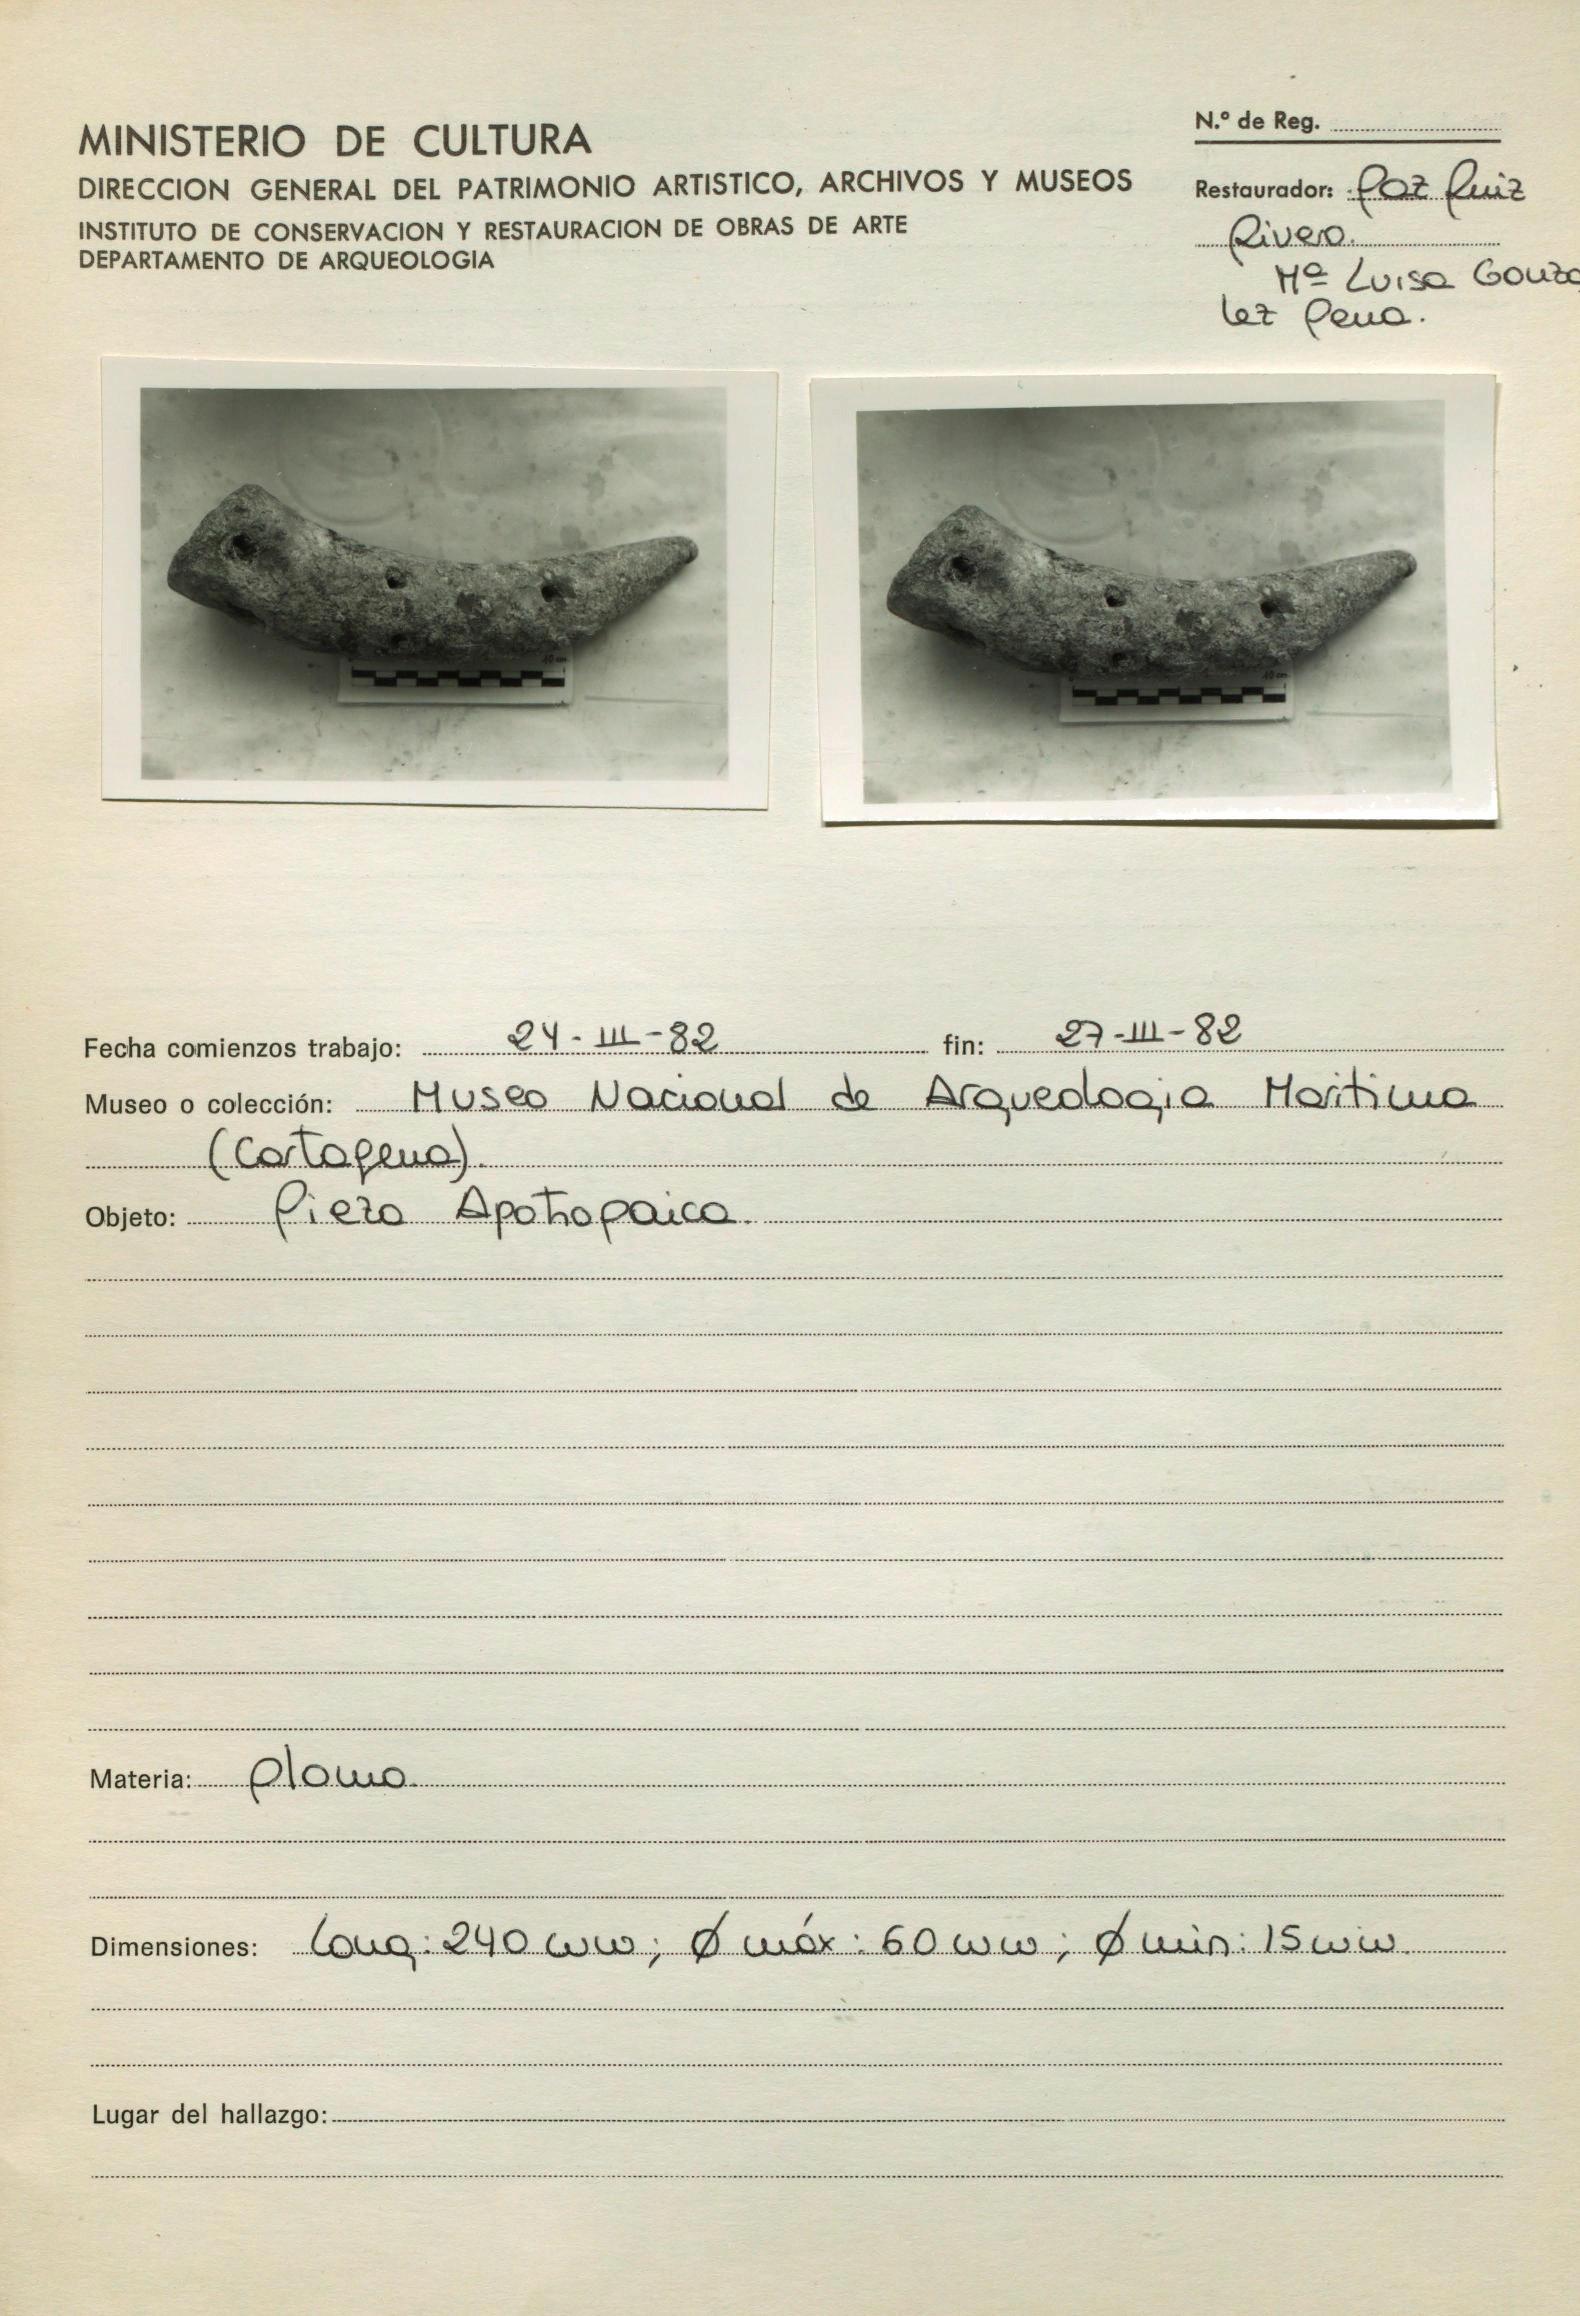 MINISTERIO DE CULTURA
DIRECCION GENERAL DEL PATRIMONIO ARTISTICO, ARCHIVOS Y MUSEOS
INSTITUTO DE CONSERVACION Y RESTAURACION DE OBRAS DE ARTE
DEPARTAMENTO DE ARQUEOLOGIA
N.º de Reg.
Restaurador: Paz Ruiz
Rivero.
Mª Luisa Gonza
lez Pena.
10 cm
10 cm
Fecha comienzos trabajo: 24-III-82 fin: 27-III-82
Museo o colección: Museo Nacional de Arqueologia Maritima
(Cartagena).
Objeto: Pieza Apotropaica.
Materia: plomo.
Dimensiones: Long: 240 mm; Ø máx: 60 mm; Ø min: 15 mm.
Lugar del hallazgo: